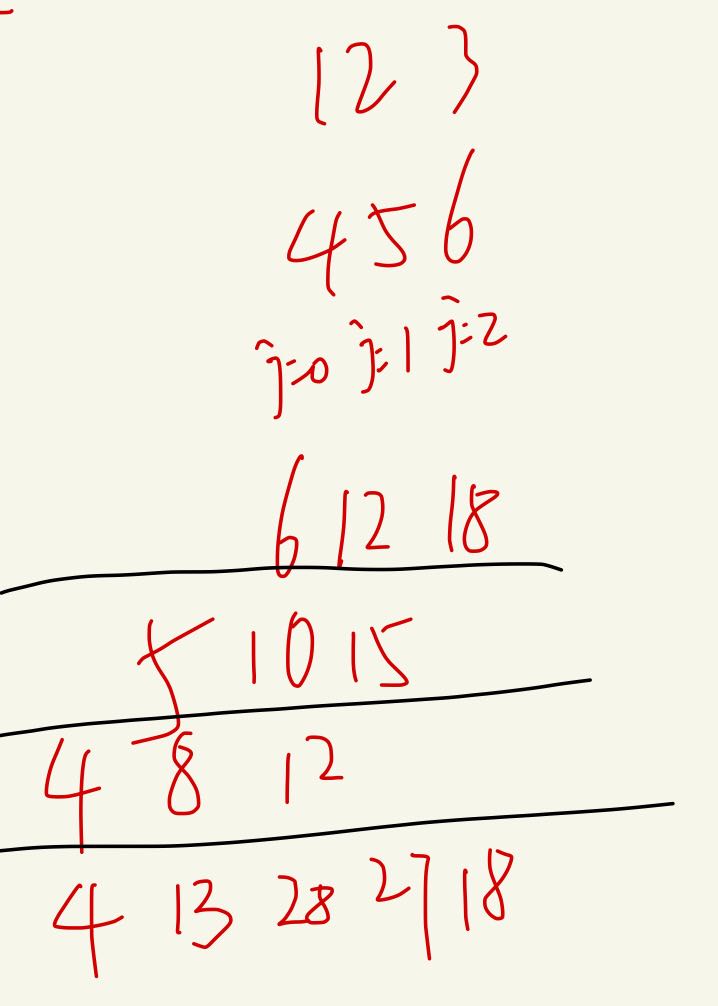 1 2 3
4 5 6
j=0 j=1 j=2
6 12 18
5 10 15
4 8 12
4 13 28 27 18